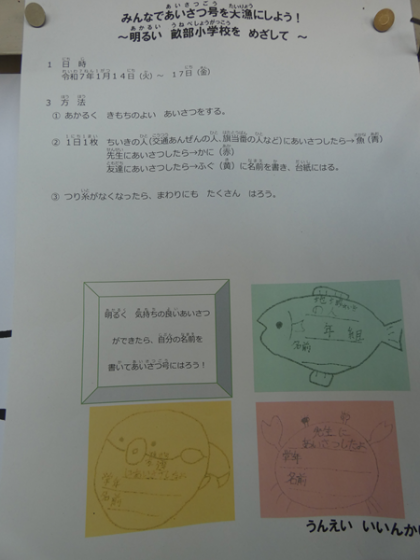 みんなであいさつ号を大漁にしよう！
～明るい 畝部小学校を めざして ～
1 日 時
令和7年1月14日（火）～ 17日（金）
3 方 法
① あかるく きもちのよい あいさつをする。
② 1日1枚 ちいきの人（交通あんぜんの人、旗当番の人など）にあいさつしたら→魚（青）
先生にあいさつしたら→かに（赤）
友達にあいさつしたら→ふぐ（黄）に名前を書き、台紙にはる。
③ つり糸がなくなったら、まわりにも たくさん はろう。
明るく 気持ちの良いあいさつ
ができたら、自分の名前を
書いてあいさつ号にはろう！
年 組
名前
学年
名前
先生に
あいさつしたよ
学年
名前
うんえい いいんかい